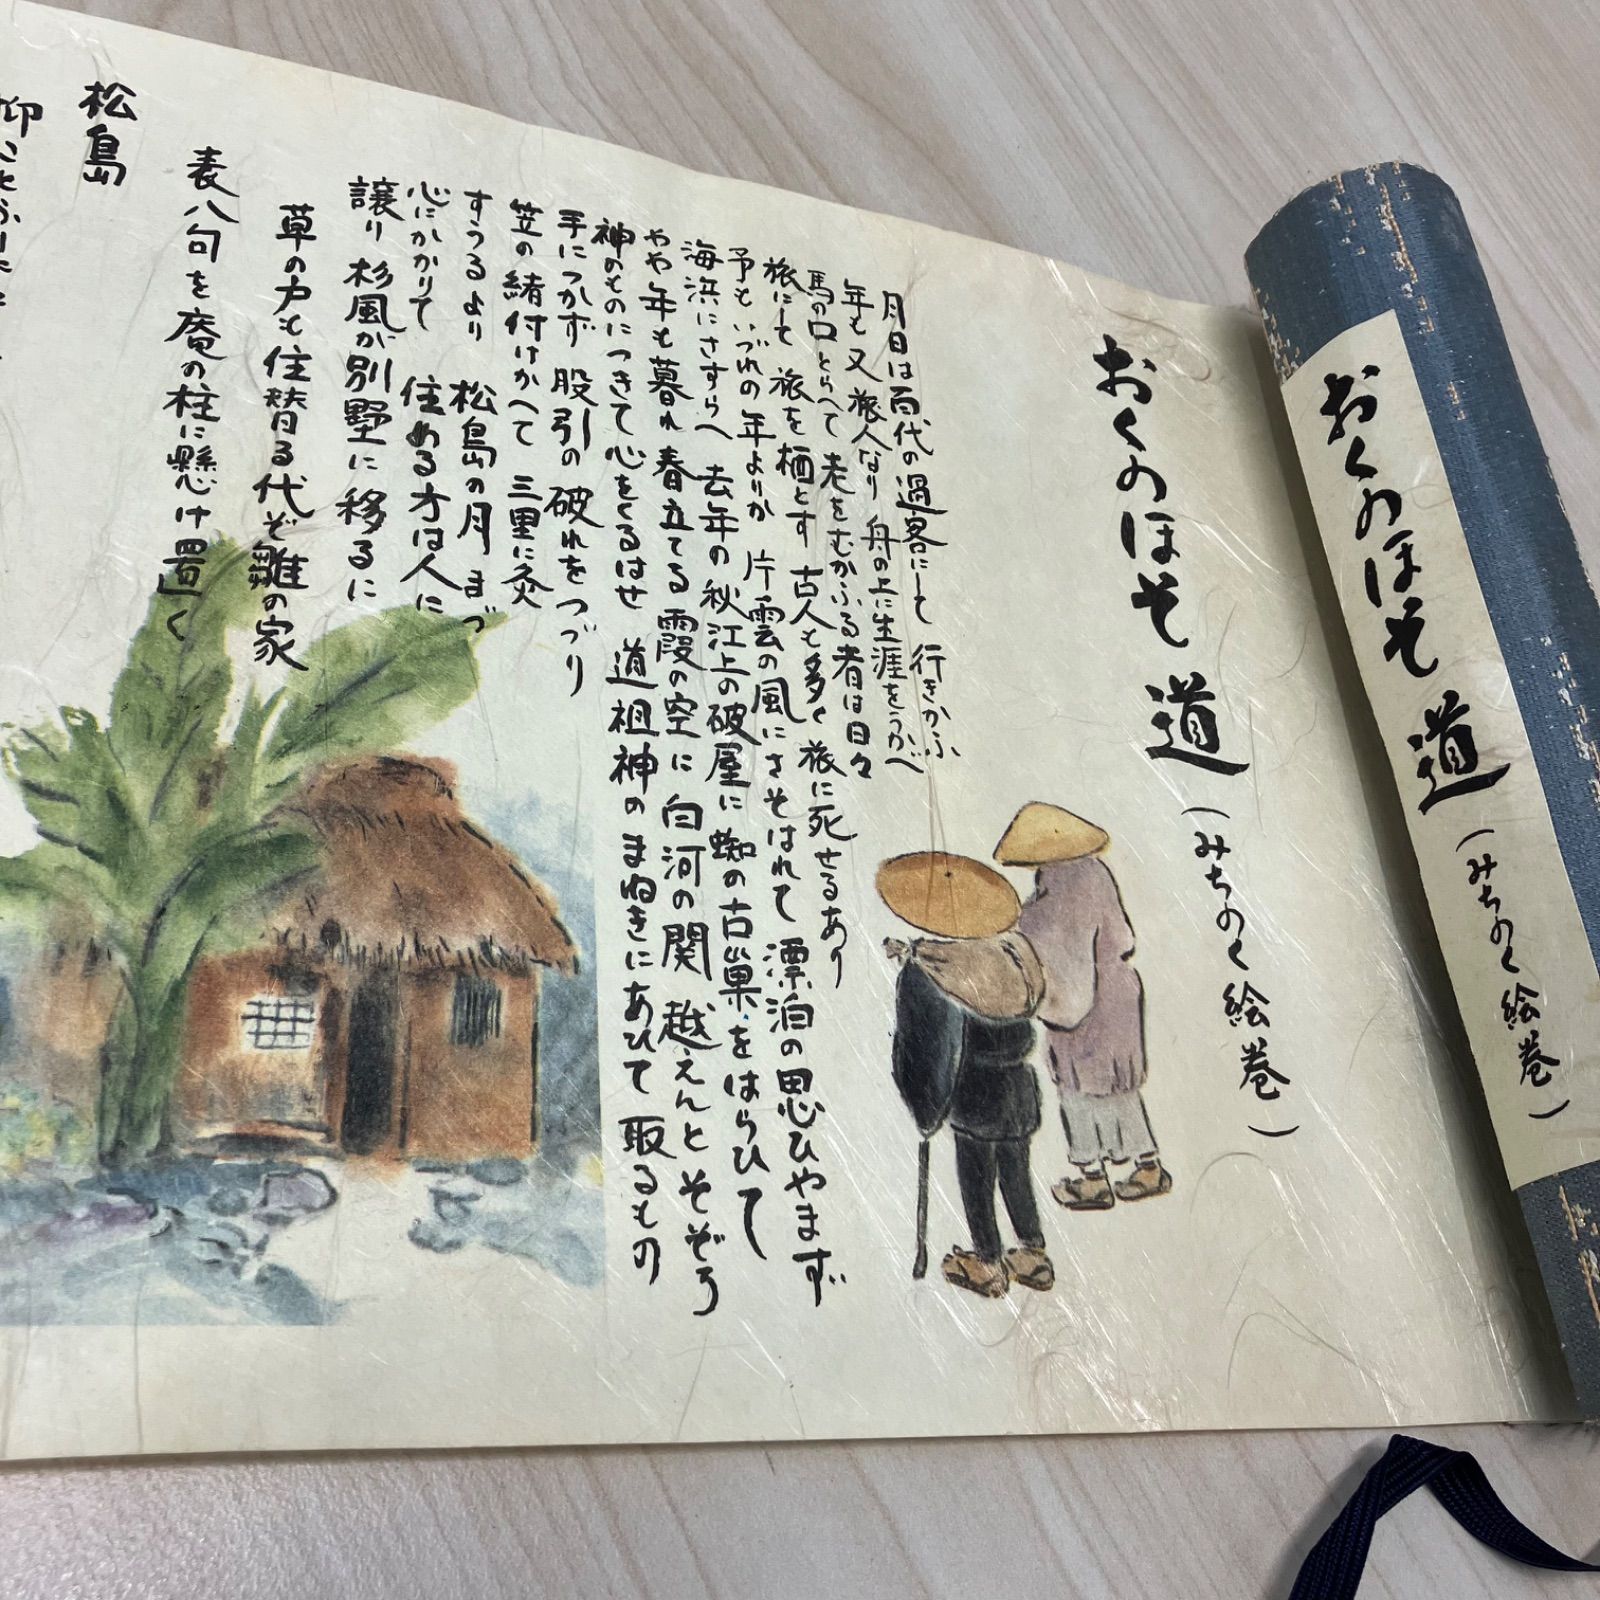 おくのほそ道(みちのく絵巻)
おくのほそ道(みちのく絵巻)
月日は百代の過客にして 行きかふ
年も又旅人なり 舟の上に生涯をうかべ
馬の口とらへて 老をむかふる者は日々
旅にして 旅を栖とす 古人も多く 旅に死せるあり
予も いづれの年よりか 片雲の風にさそはれて 漂泊の思ひやまず
海浜にさすらへ 去年の秋江上の破屋に 蜘の古巣をはらひて
やや年も暮れ 春立てる霞の空に 白河の関 越えんと そぞろ
神のものにつきて心をくるはせ 道祖神のまねきにあひて 取るもの
手につかず 股引の破れをつづり
笠の緒付けかへて 三里に灸
すうるより 松島の月 まづ
心にかかりて 住める方は人に
譲り 杉風が別墅に移るに
草の戸も住替る代ぞ雛の家
表八句を庵の柱に懸け置く
松島